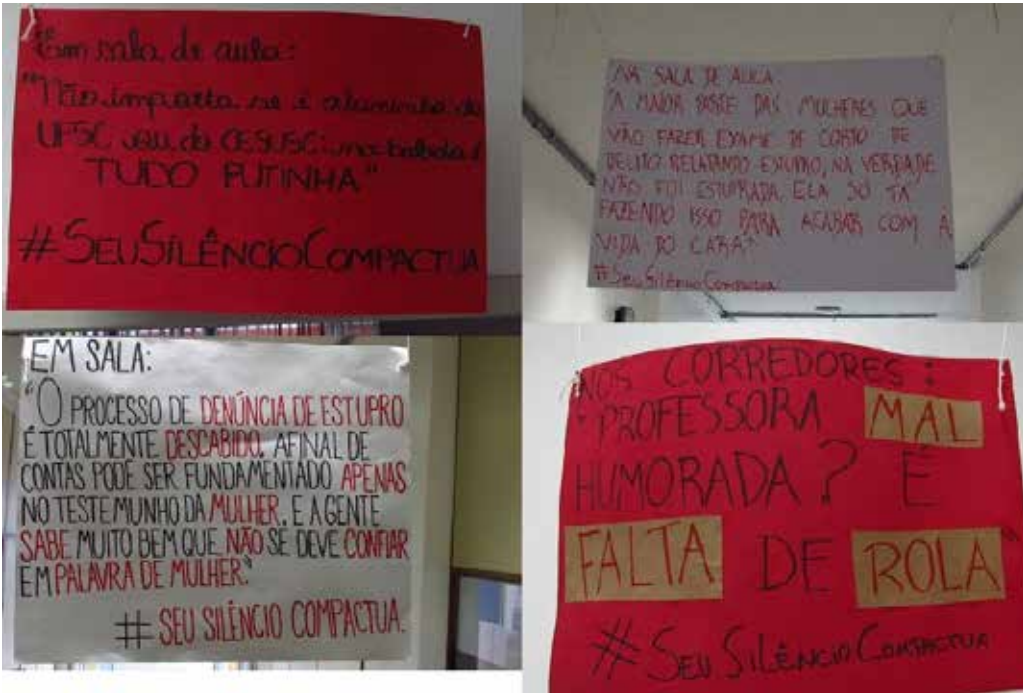 Em sala de aula:
"Não importa se é aluninha da
UFSC ou do CESUSC: na balada é
TUDO PUTINHA"
#SEUSILÊNCIOCOMPACTUA
NA SALA DE AULA:
"A MAIOR PARTE DAS MULHERES QUE
VÃO FAZER EXAME DE CORPO DE
DELITO RELATANDO ESTUPRO, NA VERDADE
NÃO FOI ESTUPRADA, ELA SÓ TA
FAZENDO ISSO PARA ACABAR COM A
VIDA DO CARA"
#SeuSilêncioCompactua
EM SALA:
"O PROCESSO DE DENÚNCIA DE ESTUPRO
É TOTALMENTE DESCABIDO. AFINAL DE
CONTAS PODE SER FUNDAMENTADO APENAS
NO TESTEMUNHO DA MULHER. E A GENTE
SABE MUITO BEM QUE NÃO SE DEVE CONFIAR
EM PALAVRA DE MULHER."
# SEU SILÊNCIO COMPACTUA.
NOS CORREDORES:
"PROFESSORA MAL
HUMORADA? É
FALTA DE ROLA"
#SEUSILÊNCIOCOMPACTUA